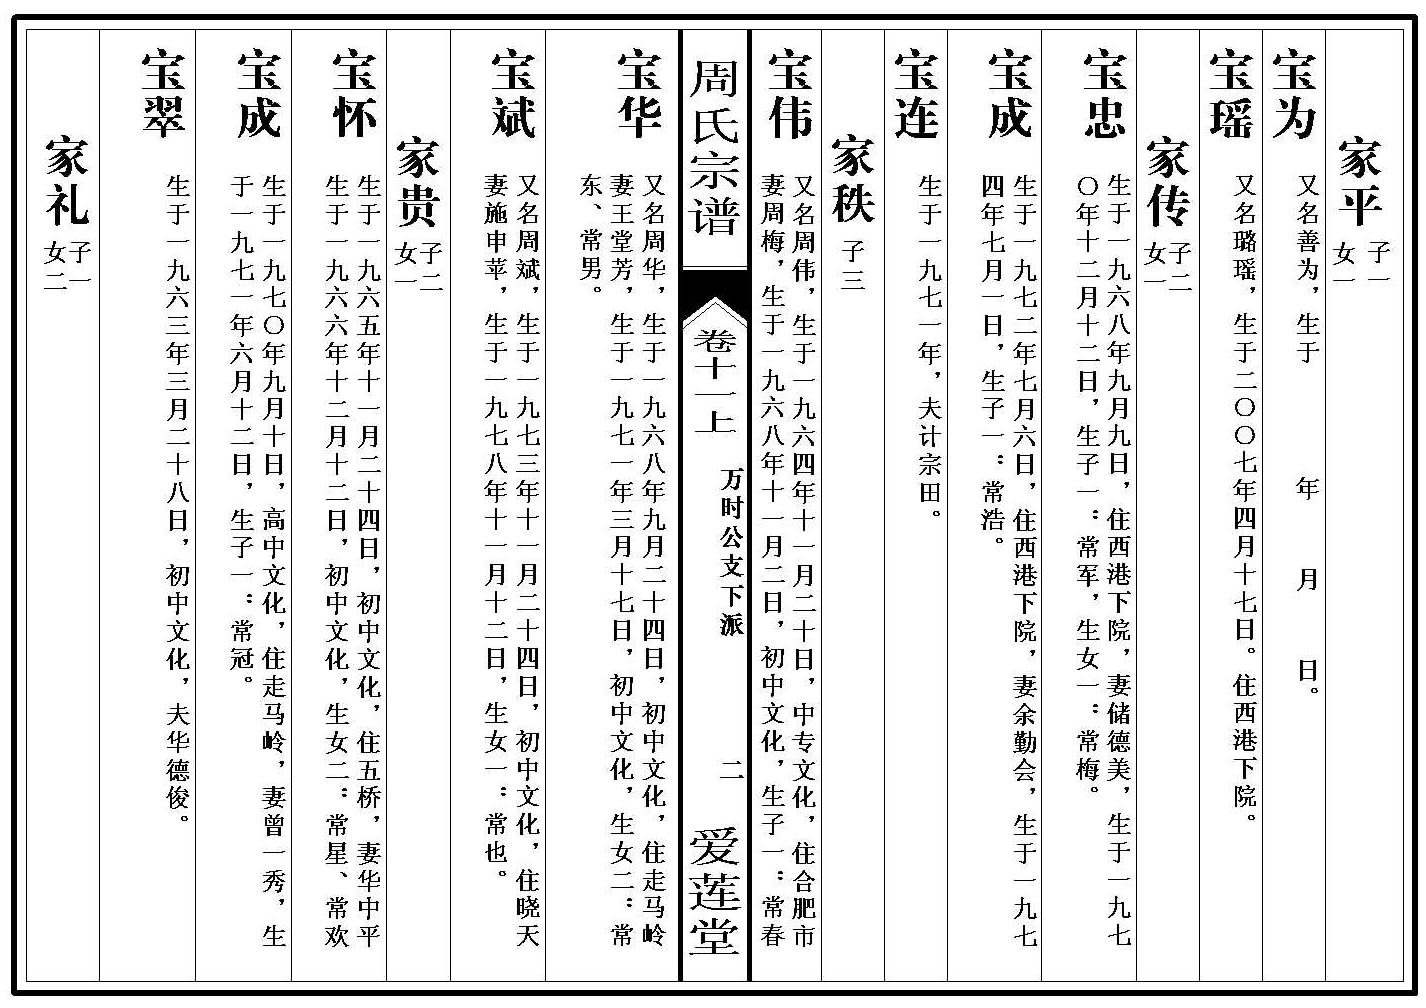 家平
子一
女一
宝为
又名善为，生于 年 月 日。
宝瑶
又名璐瑶，生于二〇〇七年四月十七日。住西港下院。
家传
子二
女一
宝忠
生于一九六八年九月九日，住西港下院，妻储德美，生于一九七
〇年十二月十二日，生子一：常军，生女一：常梅。
宝成
生于一九七二年七月六日，住西港下院，妻余勤会，生于一九七
四年七月一日，生子一：常浩。
宝连
生于一九七一年，夫计宗田。
家秩
子三
宝伟
又名周伟，生于一九六四年十一月二十日，中专文化，住合肥市
妻周梅，生于一九六八年十一月二日，初中文化，生子一：常春
周氏宗谱
卷十一上
万时公支下派
二
爱莲堂
宝华
又名周华，生于一九六八年九月二十四日，初中文化，住走马岭
妻王堂芳，生于一九七一年三月十七日，初中文化，生女二：常
东、常男。
宝斌
又名周斌，生于一九七三年十一月二十四日，初中文化，住晓天
妻施申苹，生于一九七八年十一月十二日，生女一：常也。
家贵
子二
女一
宝怀
生于一九六五年十一月二十四日，初中文化，住五桥，妻华中平
生于一九六六年十二月十二日，初中文化，生女二：常星、常欢
宝成
生于一九七〇年九月十日，高中文化，住走马岭，妻曾一秀，生
于一九七一年六月十二日，生子一：常冠。
宝翠
生于一九六三年三月二十八日，初中文化，夫华德俊。
家礼
子一
女二